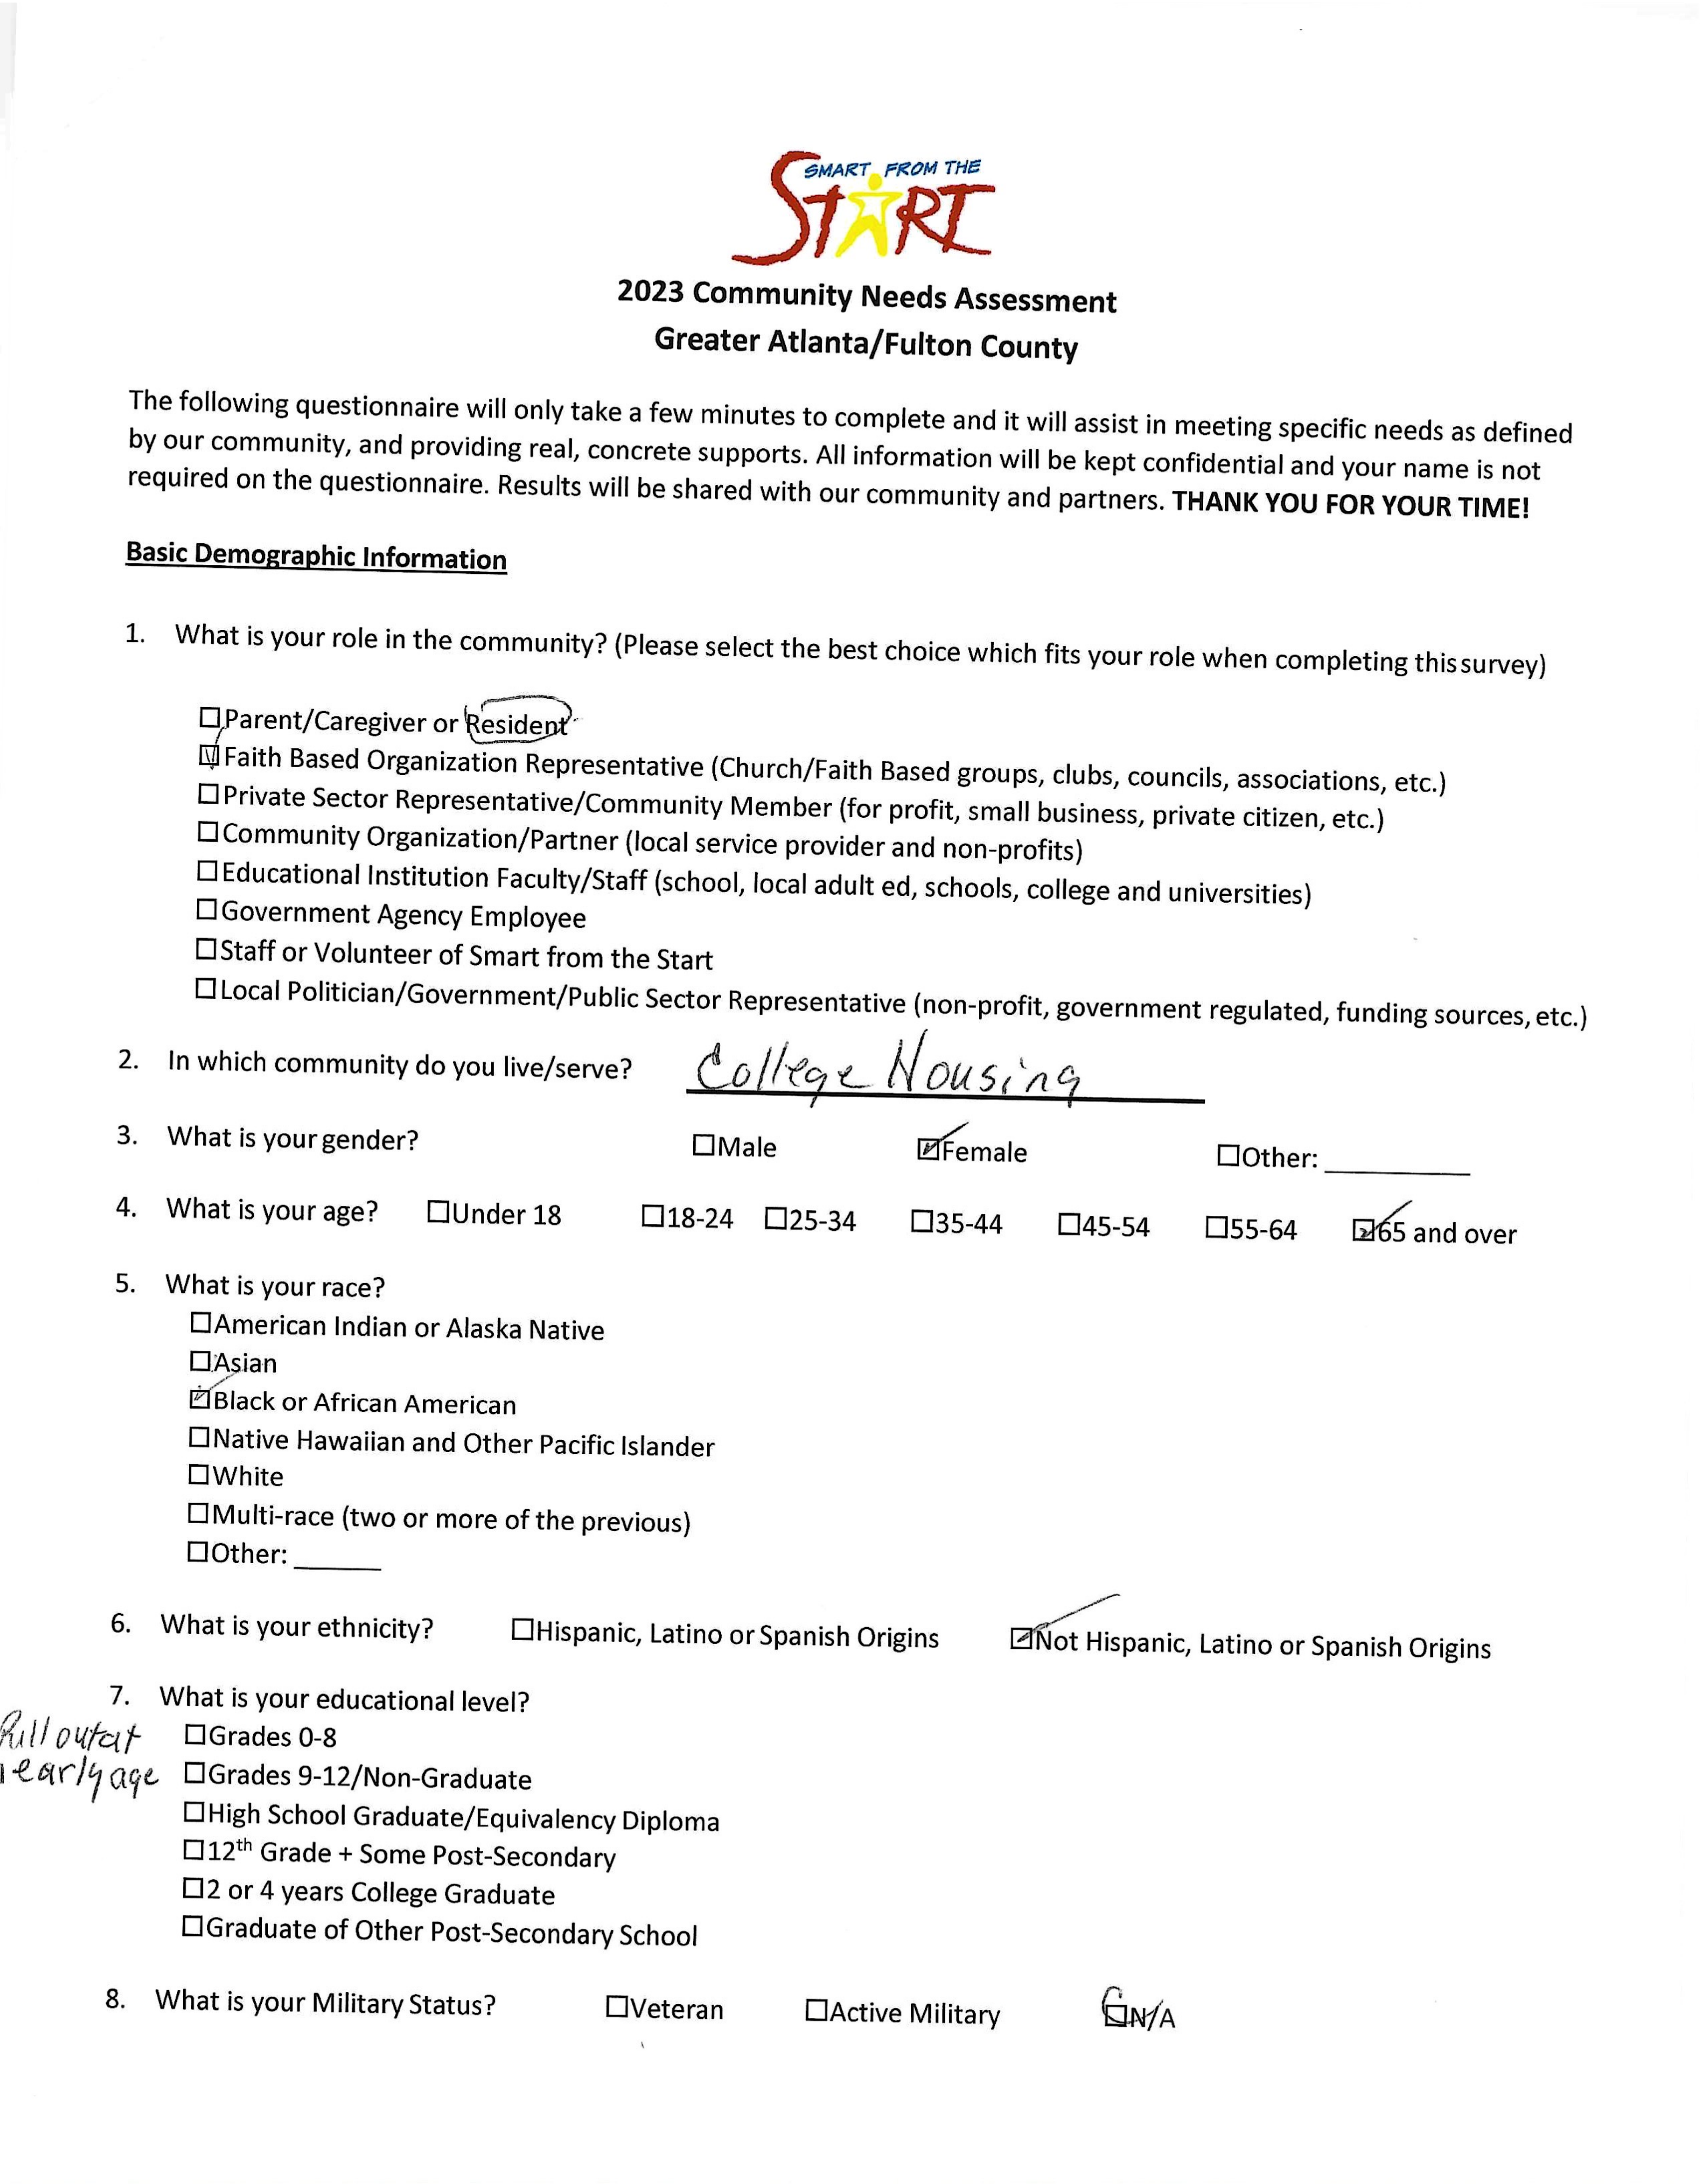 SMART FROM THE
START
2023 Community Needs Assessment
Greater Atlanta/Fulton County
The following questionnaire will only take a few minutes to complete and it will assist in meeting specific needs as defined
by our community, and providing real, concrete supports. All information will be kept confidential and your name is not
required on the questionnaire. Results will be shared with our community and partners. THANK YOU FOR YOUR TIME!
Basic Demographic Information
1. What is your role in the community? (Please select the best choice which fits your role when completing this survey)
☐Parent/Caregiver or Resident
☑Faith Based Organization Representative (Church/Faith Based groups, clubs, councils, associations, etc.)
☐Private Sector Representative/Community Member (for profit, small business, private citizen, etc.)
☐Community Organization/Partner (local service provider and non-profits)
☐Educational Institution Faculty/Staff (school, local adult ed, schools, college and universities)
☐Government Agency Employee
☐Staff or Volunteer of Smart from the Start
☐Local Politician/Government/Public Sector Representative (non-profit, government regulated, funding sources, etc.)
2. In which community do you live/serve? College Housing
3. What is your gender? ☐Male ☑Female ☐Other: ________
4. What is your age? ☐Under 18 ☐18-24 ☐25-34 ☐35-44 ☐45-54 ☐55-64 ☑65 and over
5. What is your race?
☐American Indian or Alaska Native
☐Asian
☑Black or African American
☐Native Hawaiian and Other Pacific Islander
☐White
☐Multi-race (two or more of the previous)
☐Other: ______
6. What is your ethnicity? ☐Hispanic, Latino or Spanish Origins ☑Not Hispanic, Latino or Spanish Origins
7. What is your educational level?
Pull out at ☐Grades 0-8
early age ☐Grades 9-12/Non-Graduate
☐High School Graduate/Equivalency Diploma
☐12th Grade + Some Post-Secondary
☐2 or 4 years College Graduate
☐Graduate of Other Post-Secondary School
8. What is your Military Status? ☐Veteran ☐Active Military ☑N/A